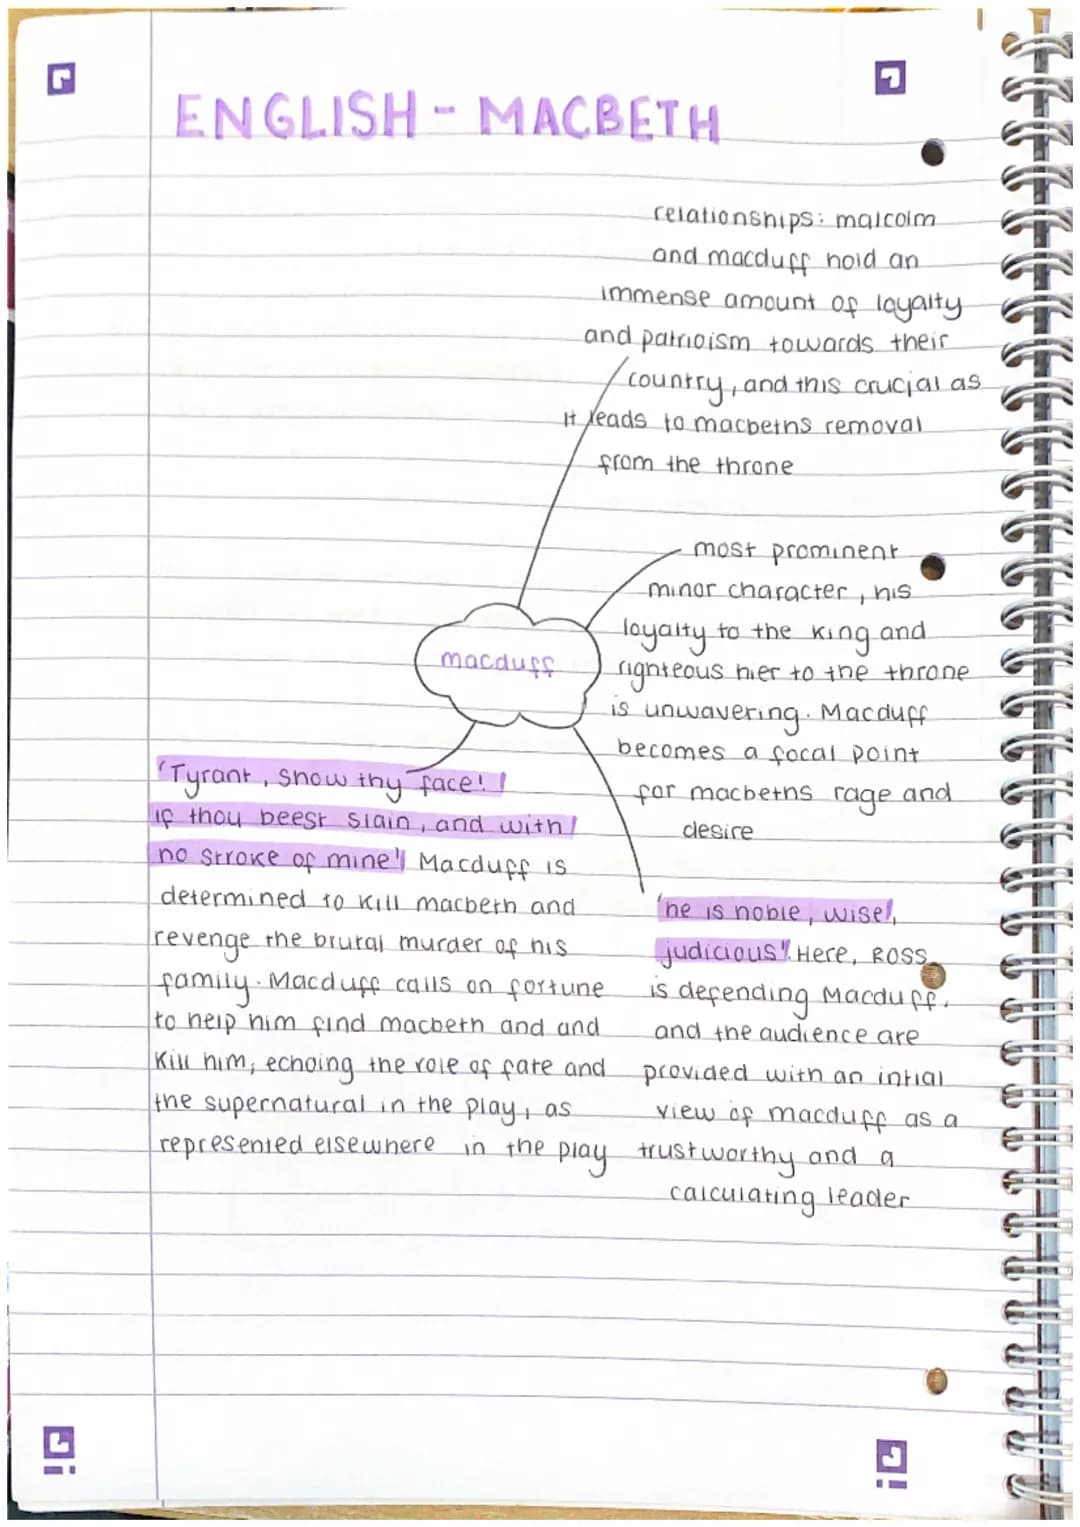 ENGLISH - MACBETH
relationships: malcolm
and macduff hold an
immense amount of loyalty
and patrioism towards their
country, and this crucial as
it leads to macbeths removal
from the throne
most prominent
minor character, his
loyalty to the king and
righteous hier to the throne
is unwavering. Macduff
becomes a focal point
for macbeths rage and
desire
macduff
'Tyrant, show thy face!
if thou beest slain, and with
no stroke of mine' Macduff is
determined to kill macbeth and
revenge the brutal murder of his
family. Macduff calls on fortune
to help him find macbeth and and
kill him, echoing the role of fate and
the supernatural in the play, as
represented elsewhere in the play
'he is noble, wise,
judicious'. Here, ROSS
is defending Macduff,
and the audience are
provided with an intial
view of macduff as a
trustworthy and a
calculating leader